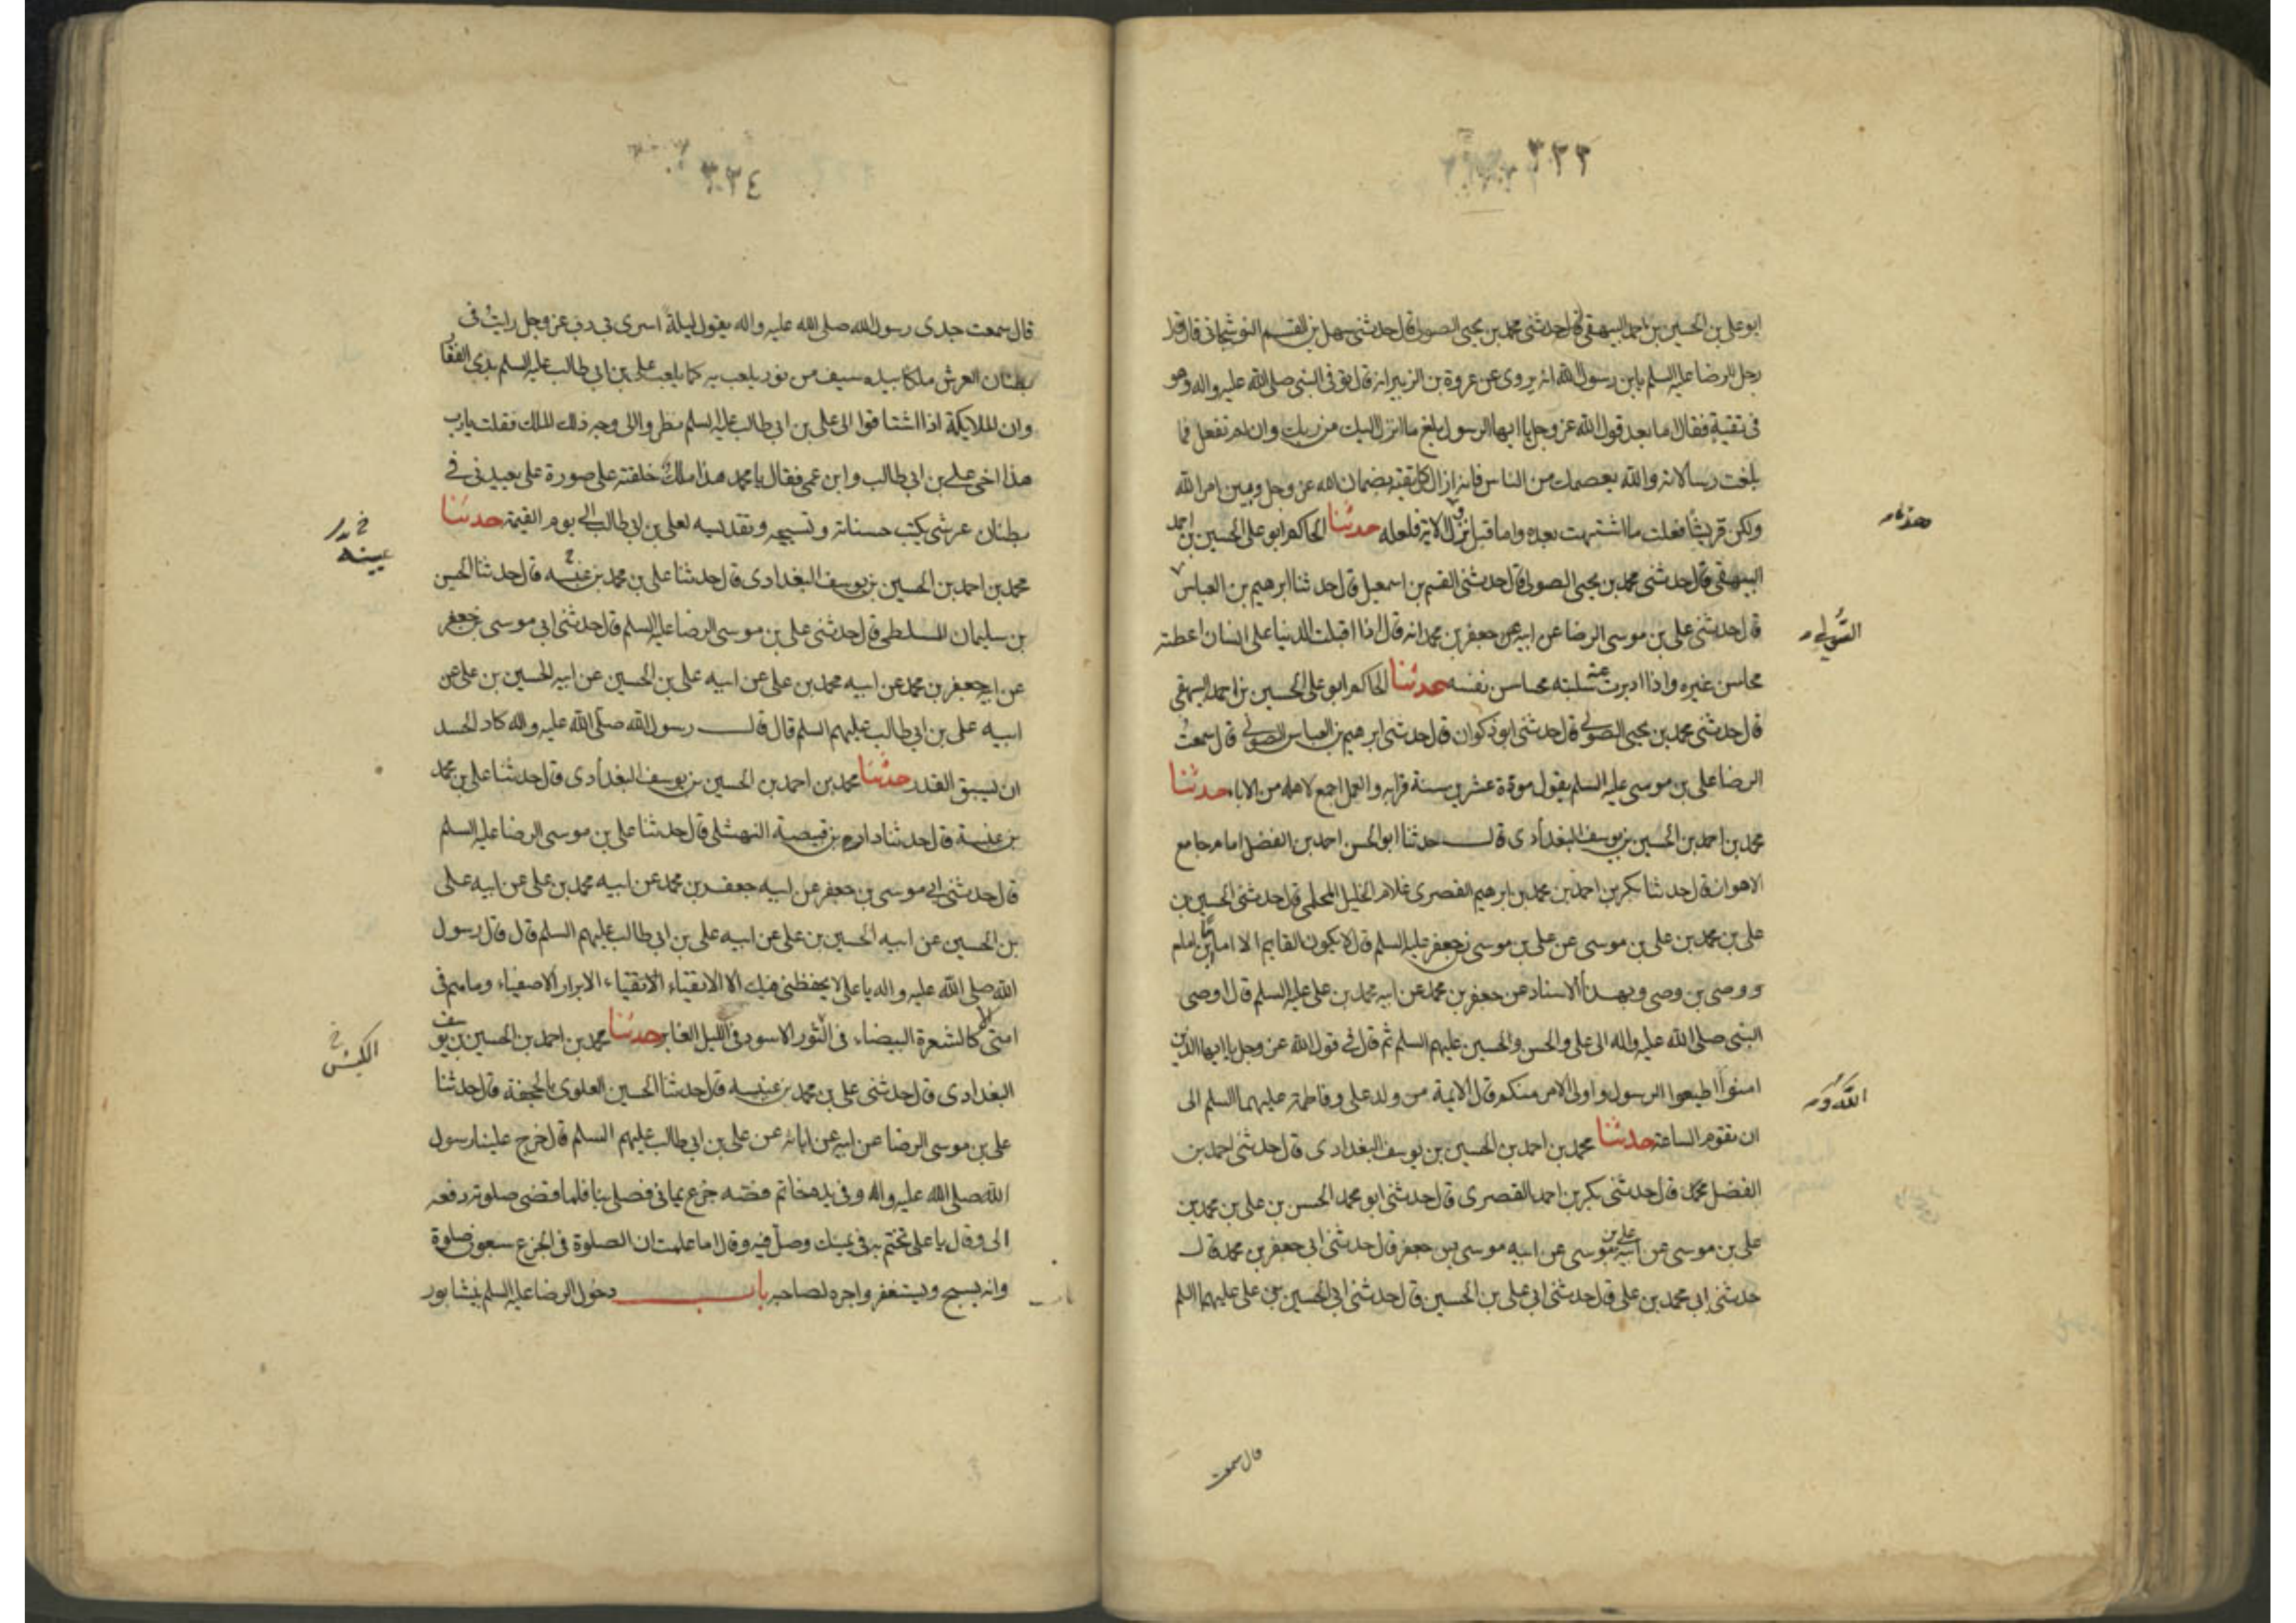 ٣٢٣
ابو علي بن الحسين بن احمد البيهقي قال حدثني محمد بن يحيى الصولي قال حدثني سهل بن القسم النوشجاني قال قال
رجل للرضا عليه السلم يابن رسول الله انه يروى عن عروة بن الزبير انه قال توفى النبي صلى الله عليه واله وهو
في تقية فقال اما بعد قول الله عز وجل يا ايها الرسول بلغ ما انزل اليك من ربك وان لم تفعل فما
بلغت رسالاته والله يعصمك من الناس فانه ازال كل تقية بضمان الله عز وجل وبين امر الله
ولكن قريشا فعلت ما اشتهت بعده واما قبل نزول الاية فلعله حدثنا الحاكم ابو علي الحسين بن احمد
البيهقي قال حدثني محمد بن يحيى الصولي قال حدثني القسم بن اسمعيل قال حدثنا ابرهيم بن العباس
الصولي
قال حدثني علي بن موسى الرضا عن ابيه عن جعفر بن محمد انه قال اذا اقبلت الدنيا على انسان اعطته
محاسن غيره واذا ادبرت عنه سلبته محاسن نفسه حدثنا الحاكم ابو علي الحسين بن احمد البيهقي
قال حدثني محمد بن يحيى الصولي قال حدثني ابو ذكوان قال حدثني ابرهيم بن العباس الصولي قال سمعت
الرضا علي بن موسى عليه السلم يقول مودة عشرين سنة قرابه والعلم اجمع لاهله من الاباء حدثنا
محمد بن احمد بن الحسين بن يوسف البغدادى قال حدثنا ابو الحسن احمد بن الفضل امام جامع
الاهواز قال حدثنا بكر بن احمد بن محمد بن ابرهيم القصرى غلام الخليل المحلمي قال حدثني الحسن بن
علي بن محمد بن علي بن موسى عن علي بن موسى بن جعفر عليه السلم قال لا يكون القايم الا امام بن امام
ووصى بن وصى وبهذا الاسناد عن جعفر بن محمد عن ابيه محمد بن علي عليه السلم قال اوصى
النبي صلى الله عليه واله الى علي والحسن والحسين عليهم السلم ثم قال في قول الله عز وجل يا ايها الذين
امنوا اطيعوا الرسول واولى الامر منكم قال الايمة من ولد علي وفاطمة عليهما السلم الى
ان تقوم الساعة حدثنا محمد بن احمد بن الحسين بن يوسف البغدادى قال حدثني احمد بن
الفضل محمد قال حدثني بكر بن احمد القصرى قال حدثني ابو محمد الحسن بن علي بن محمد بن
علي بن موسى عن ابيه علي بن موسى عن ابيه موسى بن جعفر قال حدثني ابي جعفر بن محمد قال
حدثني ابي محمد بن علي قال حدثني ابي علي بن الحسين قال حدثني ابي الحسين بن علي عليهما السلم
قال سمعت
٣٢٤
قال سمعت جدى رسول الله صلى الله عليه واله يقول ليلة اسرى بي ربي عز وجل رايت في
بطنان العرش ملكا بيده سيف من نور يلعب به كما يلعب علي بن ابي طالب عليه السلم بذى الفقار
وان الملايكة اذا اشتاقوا الى علي بن ابي طالب عليه السلم نظروا الى وجه ذلك الملك فقلت يا رب
هذا اخي علي بن ابي طالب وابن عمي فقال يا محمد هذا ملك خلقته على صورة علي يعبدني في
بطنان عرشي يكتب حسناته وتسبيحه وتقديسه لعلي بن ابي طالب الى يوم القيمة حدثنا
محمد بن احمد بن الحسين بن يوسف البغدادى قال حدثنا علي بن محمد بن عنبسه قال حدثنا الحسن
بن سليمان الملطي قال حدثني علي بن موسى الرضا عليه السلم قال حدثني ابي موسى بن جعفر
عن ابيه جعفر بن محمد عن ابيه محمد بن علي عن ابيه علي بن الحسين عن ابيه الحسين بن علي عن
ابيه علي بن ابي طالب عليهم السلم قال قال رسول الله صلى الله عليه واله كاد الحسد
ان يسبق القدر حدثنا محمد بن احمد بن الحسين بن يوسف البغدادى قال حدثنا علي بن محمد
بن عنبسة قال حدثنا دارم بن قبيصة النهشلي قال حدثنا علي بن موسى الرضا عليه السلم
قال حدثني ابي موسى بن جعفر عن ابيه جعفر بن محمد عن ابيه محمد بن علي عن ابيه علي
بن الحسين عن ابيه الحسين بن علي عن ابيه علي بن ابي طالب عليهم السلم قال قال رسول
الله صلى الله عليه واله يا علي لا يحفظني فيك الا الاتقياء الانقياء الابرار الاصفياء وما هم في
امتي الا كالشعرة البيضاء في الثور الاسود في الليل الغابر حدثنا محمد بن احمد بن الحسين بن يوسف
البغدادى قال حدثني علي بن محمد بن عنبسه قال حدثنا الحسين العلوى بالجحفة قال حدثنا
علي بن موسى الرضا عن ابيه عن ابائه عن علي بن ابي طالب عليهم السلم قال خرج علينا رسول
الله صلى الله عليه واله وفي يده خاتم فضه جزع يماني فصلى بنا فلما قضى صلوته دفعه
الي وقال يا علي تختم به في يمينك وصل فيه وقال اما علمت ان الصلوة في الجزع سبعون صلوة
وانه يسبح ويستغفر واجره لصاحبه باب دخول الرضا عليه السلم نيشابور